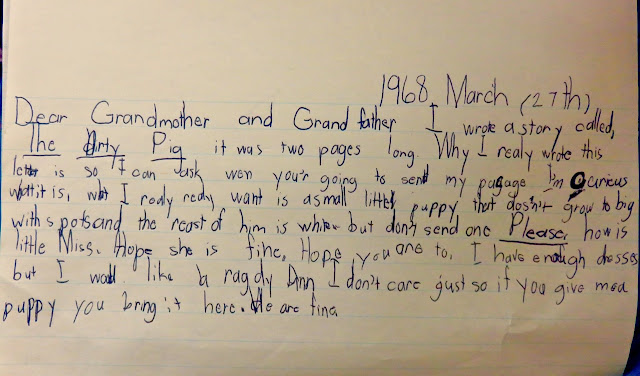 1968, March (27th)
Dear Grandmother and Grand father I wrote a story called,
The Dirty Pig it was two pages long. Why I realy wrote this
letter is so I can ask wen your going to send my pagage I'm curious
watit is, wat I realy realy want is a small little puppy that dosn't grow to big
with spots and the reast of him is white but don't send one Please, how is
little Miss. Hope she is fine, Hope you are to, I have enough dresses
but I would like a ragdy Ann I don't care just so if you give me a
puppy you bring it here. We are fine